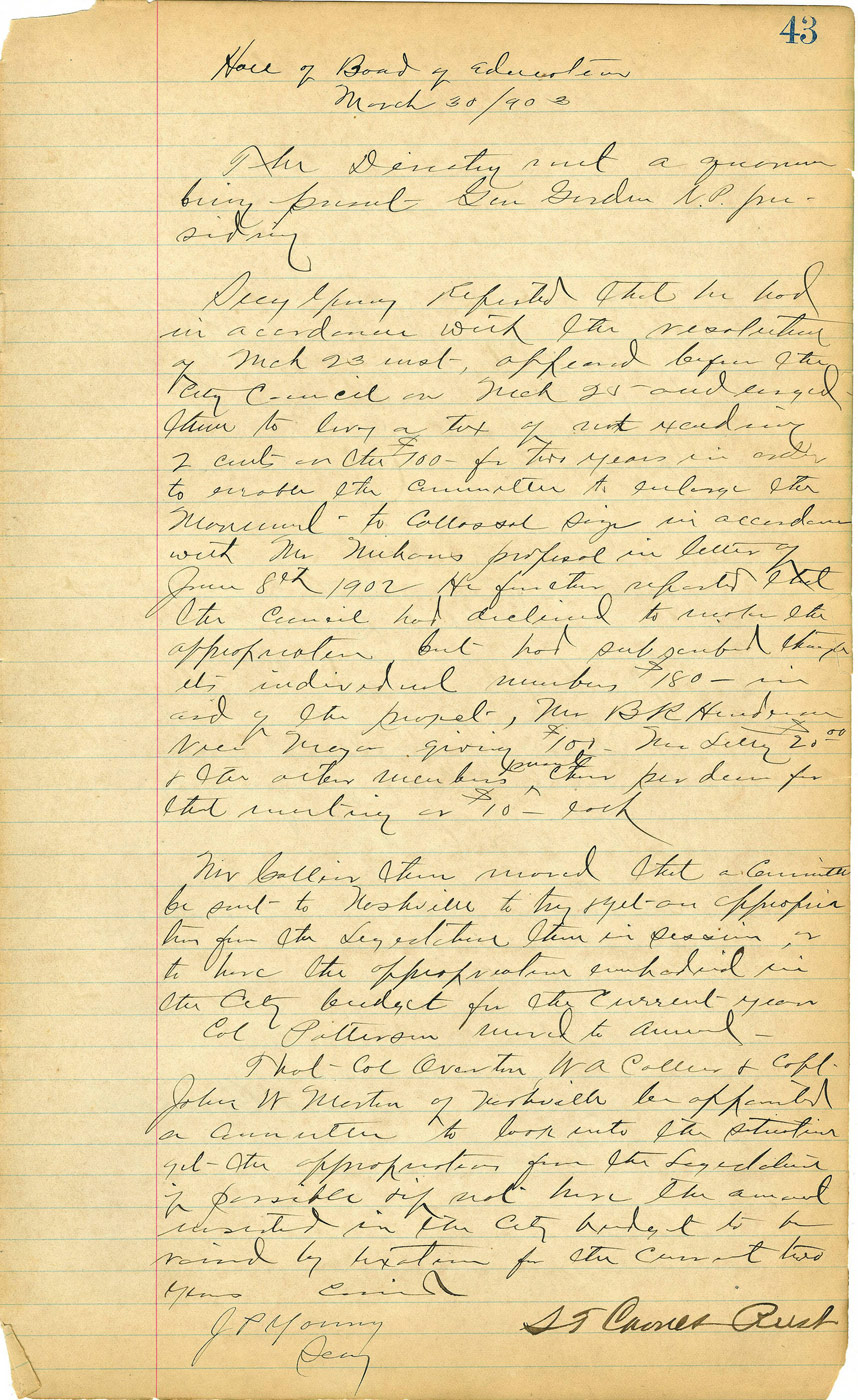 43
Hall of Board of Education
March 30/903
The Directory met a quorum
being present Gen Gordon V.P. pre-
siding
Secy Young Reported that he had
in acordance with the resolution
of Mch 23 inst, appeared before the
City Council on Mch 25 and urged
them to levy a tax of not exceeding
2 cents on the $100 - for two years in order
to enable the committee to enlarge the
Monument - to Collossal size in accordance
with Mr Niehaus proposal in letter of
June 8th 1902 He further reported that
the Council had declined to make the
appropriation but had subscribed through
its individual members $180 - in
aid of the project, Mr B R Henderson
Vice Mayor giving $100 - Mr $20.00
& the other members their per diem for
that meeting or $10 - each
Mr Collier then moved that a Committee
be sent to Nashville to try & get an appropria
tion from the Legislature then in session or
to have the appropriation embodied in
the City budget for the current year
Col Patterson moved to amend -
That Col Overton, W A Collier & Capt.
John W Morton of Nashville be appointed
a committee to look into the situation
get the appropriation from the Legislature
if possible & if not have the amount
inserted in the City budget to be
raised by taxation for the current two
years carried
J P Young
Secy
S T Carnes Prest